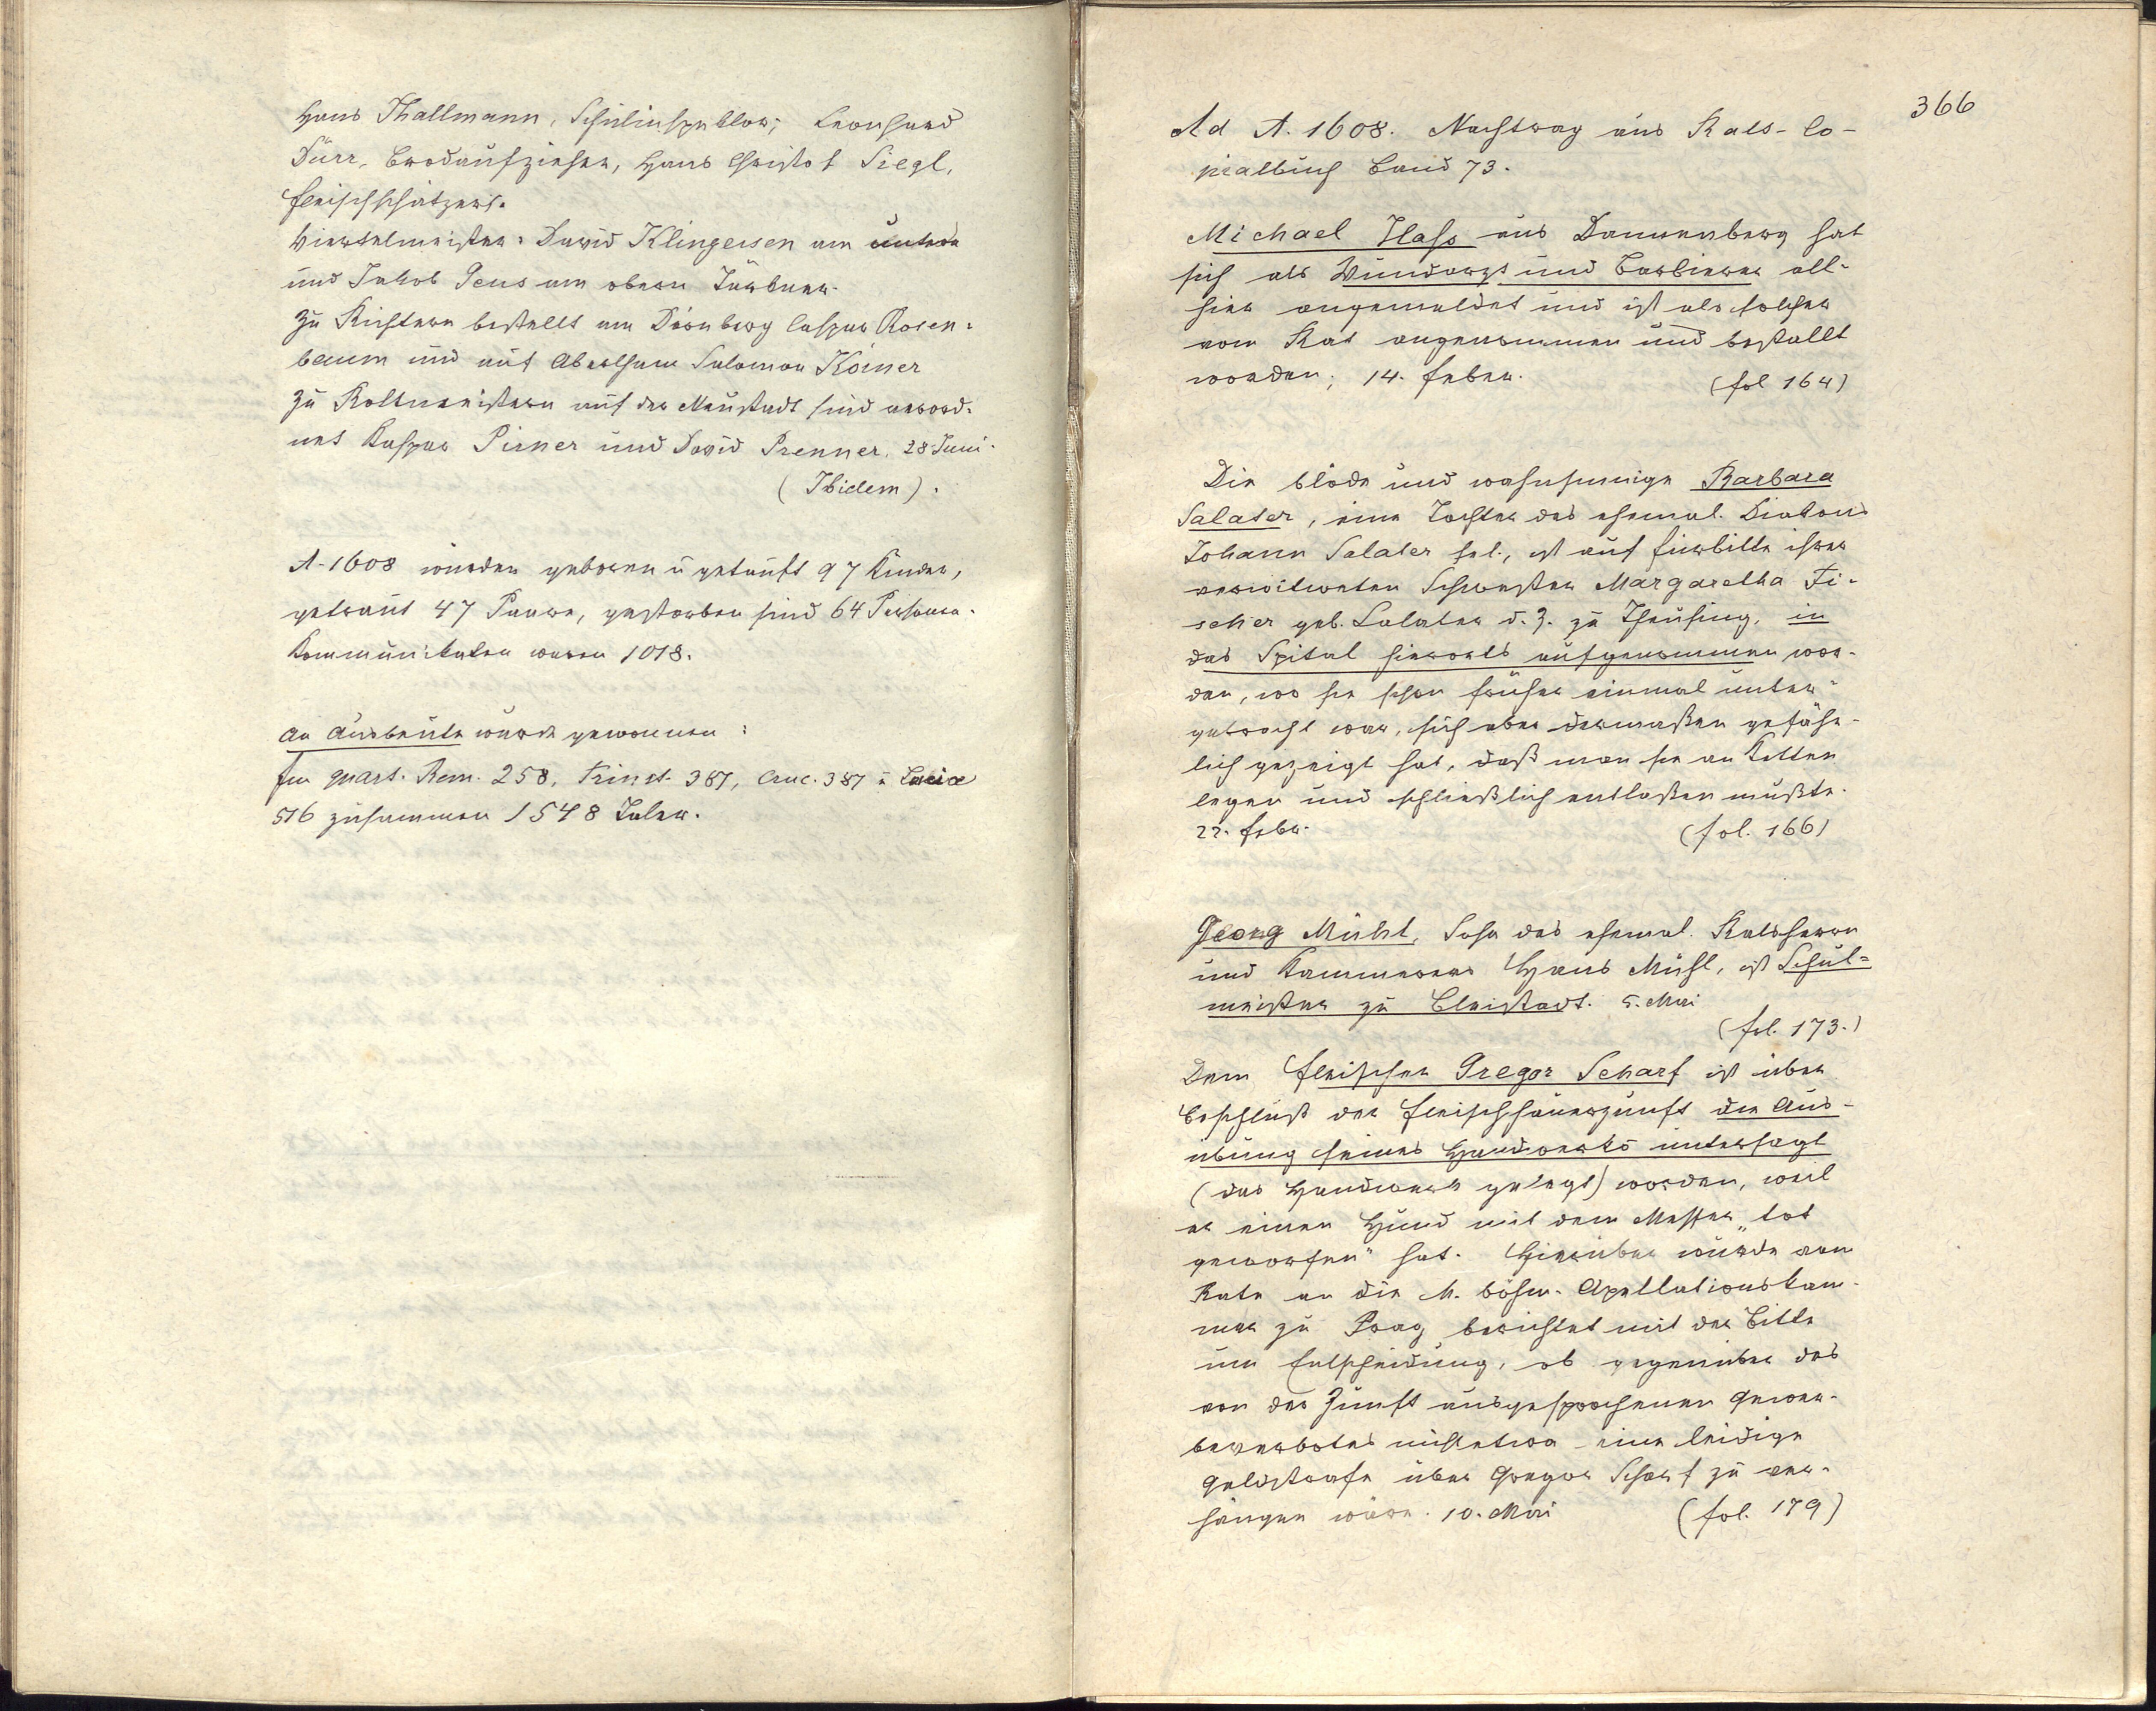 Hans Thallmann, Schulinspektor; Leonhard
Dürr, Brodaufzieher, Hans Christof Siegl,
Fleischschätzer.
Viertelmeister: David Klingeisen am untern
und Jakob Peus am obern Türbner.
Zu Richtern bestellt am Dürnberg Caspar Rosen-
baum und auf Abertham Salomon Köiner
Zu Rottmeistern auf der Neustadt sind verord-
net Kaspar Pirner und David Prenner. 28 Juni.
(Ibidem).
A. 1608 wurden geboren u getauft 97 Kinder,
getraut 47 Paare, gestorben sind 64 Personen.
Kommunikaten waren 1018.
An Ausbeute wurde gewonnen:
Im quart. Rem. 258, Trinit. 387, Cruc. 387 u Lucia
516 zusammen 1548 Taler.
366
Ad A. 1608. Nachtrag aus Rats-Co-
pialbuch Band 73.
Michael Hass aus Dannenberg hat
sich als Wundarzt und Barbierer all-
hier angemeldet und ist als solcher
vom Rat angenommen und bestallt
worden; 14. Feber. (fol 164)
Die blöde und wahnsinnige Barbara
Salater, eine Tochter des ehemal. Diakons
Johann Salater sel., ist auf Fürbitte ihrer
verwitweten Schwester Margaretha Fi-
scher geb. Salater d. Z. zu Theusing, in
das Spital hierorts aufgenommen wor-
den, wo sie schon früher einmal unter-
gebracht war, sich aber dermaßen gefähr-
lich gezeigt hat, daß man sie an Ketten
legen und schließlich entlaßen mußte.
22. Febr. (fol. 166)
Georg Mühl, Sohn des ehemal. Ratsherrn
und Kammerers Hans Mühl, ist Schul-
meister zu Bleistadt. 5. Mai
(fol. 173.)
Dem Fleischer Gregor Scharf ist über
Beschluß der Fleischhauerzunft die Aus-
übung seines Handwerks untersagt
(das Handwerk gelegt) worden, weil
er einen Hund mit dem Messer „tot
geworfen" hat. Hierüber wurde vom
Rate an die k. böhm. Apellationskam-
mer zu Prag berichtet mit der Bitte
um Entscheidung, ob gegenüber des
von der Zunft ausgesprochenen Gewer-
beverbotes nicht etwa eine leidige
Geldstrafe über Gregor Scharf zu ver-
hängen wäre. 10. Mai (fol. 179)